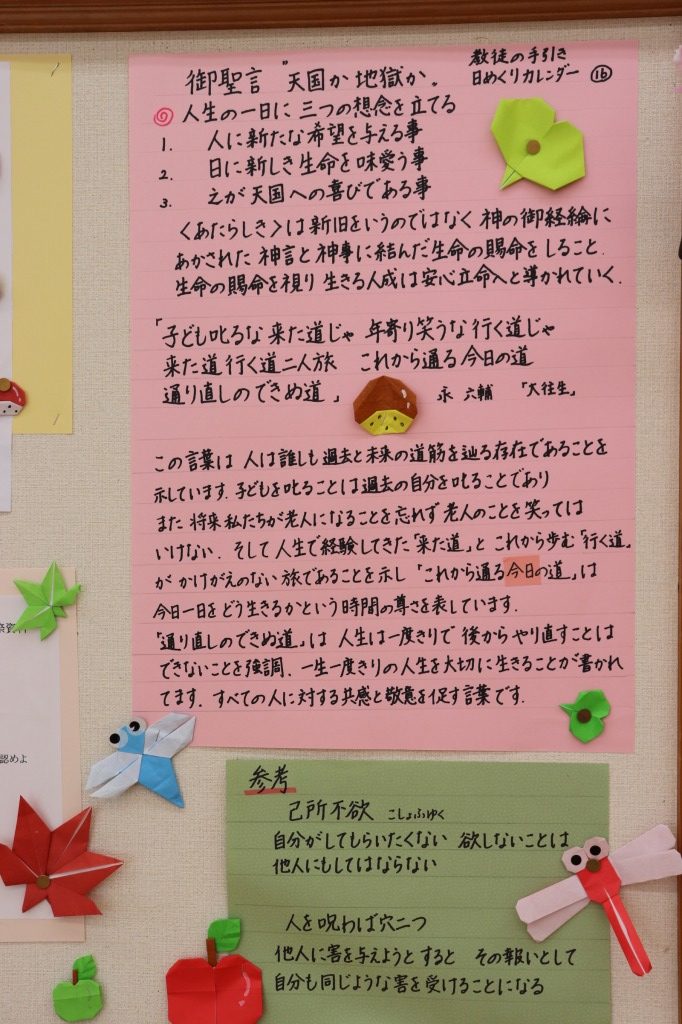 教徒の手引き
日めくりカレンダー ⑯
御聖言 "天国か地獄か"
◎ 人生の一日に 三つの想念を立てる
1. 人に新たな希望を与える事
2. 日に新しき生命を味愛う事
3. 之が天国への喜びである事
〈あたらしき〉は新旧をいうのではなく 神の御経綸に
あかされた 神言と神事に結んだ生命の賜命を しること.
生命の賜命を視り 生きる人成は安心立命へと導かれていく.
「子ども叱るな 来た道じゃ 年寄り笑うな 行く道じゃ
来た道 行く道 二人旅 これから通る 今日の道
通り直しのできぬ道」
永 六輔 『大往生』
この言葉は 人は誰しも過去と未来の道筋を辿る存在であることを
示しています. 子どもを叱ることは過去の自分を叱ることであり
また 将来 私たちが老人になることを忘れず 老人のことを笑っては
いけない. そして 人生で経験してきた「来た道」と これから歩む「行く道」
が かけがえのない 旅であることを示し 「これから通る今日の道」は
今日一日をどう生きるかという時間の尊さを表しています.
「通り直しのできぬ道」は 人生は一度きりで 後から やり直すことは
できないことを強調、一生一度きりの人生を大切に生きることが書かれ
てます. すべての人に対する共感と敬意を促す言葉です.
認めよ
参考
己所不欲 こしょふゆく
自分がしてもらいたくない 欲しないことは
他人にもしてはならない
人を呪わば穴二つ
他人に害を与えようとすると その報いとして
自分も同じような害を受けることになる